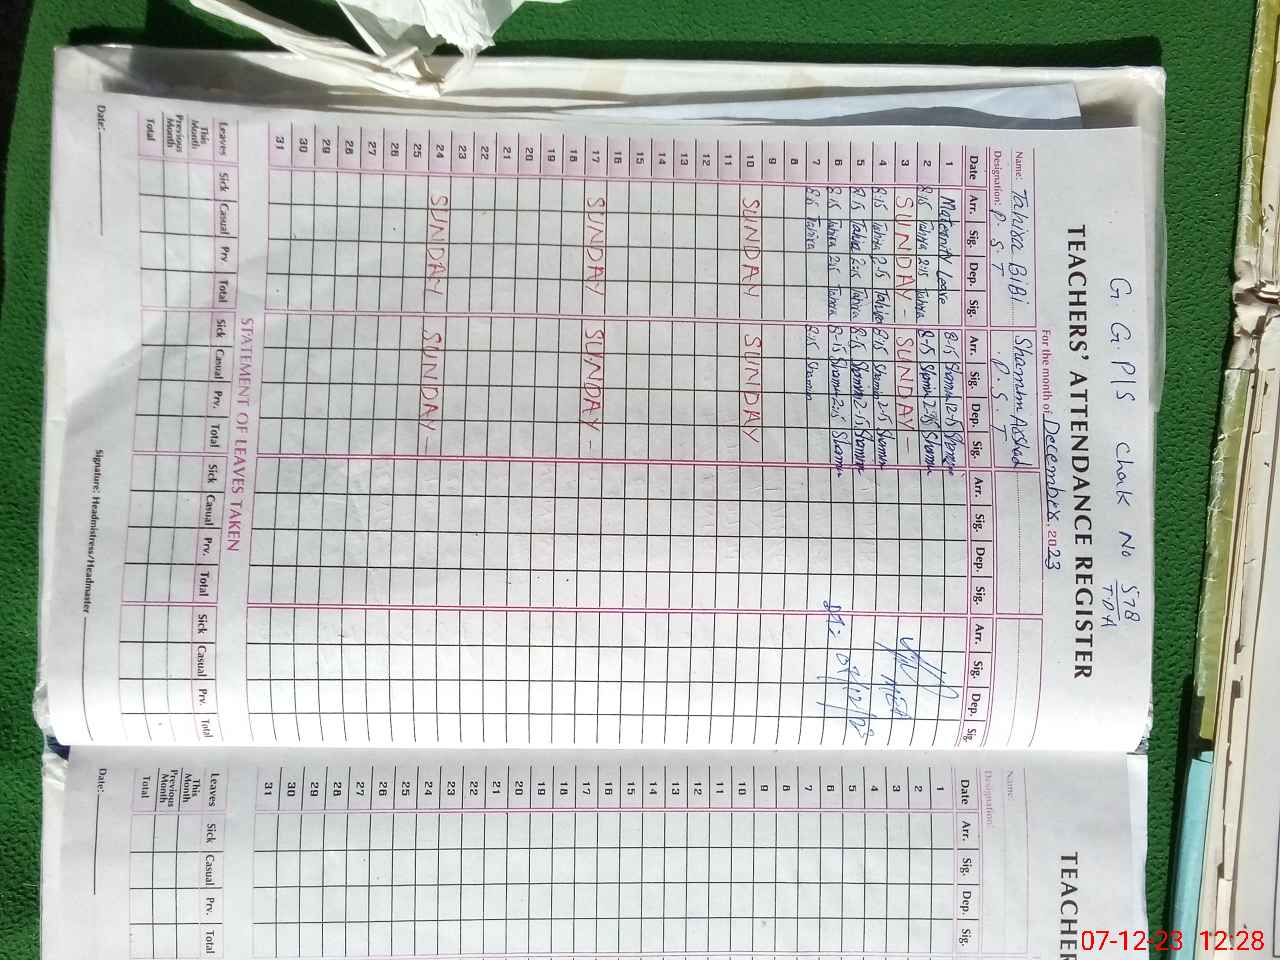 G. G. P/S chak No 578
T.D.A
TEACHERS' ATTENDANCE REGISTER
For the month of December, 2023
Name: Tahira BiBi Shamim Arshad
Designation: P. S. T P. S. T
Date Arr. Sig. Dep. Sig. Arr. Sig. Dep. Sig. Arr. Sig. Dep. Sig. Arr. Sig. Dep. Sig.
1 Maternity Leave 8-15 Shamim 2-15
2 8:15 Tahira 2:15 Tahira 8-15 Shamim 2-15 Shamim
3 SUNDAY - SUNDAY -
4 8:15 Tahira 2:15 Tahira 8:15 Shamim 2-15 Shamim
5 8:15 Tahira 2:15 Tahira 8-15 Shamim 2-15 Shamim
6 8:15 Tahira 2:15 Tahira 8-15 Shamim 2:15 Shamim
7 8:15 Tahira 8:15 Shamim
07/12/23
8
9
10 SUNDAY SUNDAY
11
12
13
14
15
16
17 SUNDAY SUNDAY -
18
19
20
21
22
23
24 SUNDAY SUNDAY -
25
26
27
28
29
30
31
STATEMENT OF LEAVES TAKEN
Leaves Sick Casual Prv Total Sick Casual Prv. Total Sick Casual Prv. Total Sick Casual Prv. Total
This Month
Previous Month
Total
Date: Signature: Headmistress/Headmaster
TEACHER
Name:
Designation:
Date Arr. Sig. Dep. Sig.
1
2
3
4
5
6
7
8
9
10
11
12
13
14
15
16
17
18
19
20
21
22
23
24
25
26
27
28
29
30
31
Leaves Sick Casual Prv. Total
This Month
Previous Month
Total
Date:
07-12-23 12:28